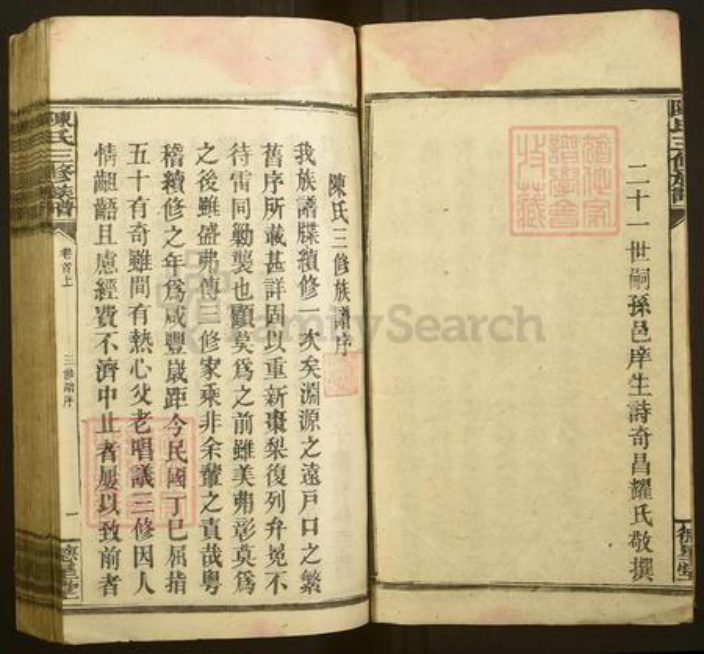 二十一世嗣孫邑庠生詩奇昌耀氏敬撰
陳氏三修族譜序
我族譜牒續修一次矣淵源之遠戸口之繁
舊序所載甚詳固以重新棗梨復列弁冕不
待雷同勦襲也顧莫爲之前雖美弗彰莫爲
之後雖盛弗傳三修家乘非余輩之責哉粤
稽續修之年爲咸豐歲距今民國丁巳屈指
五十有奇雖間有熱心父老唱議三修因人
情齟齬且慮經費不濟中止者屢以致前者
陳氏三修族譜
卷首上
三修譜序
一
FamilySearch